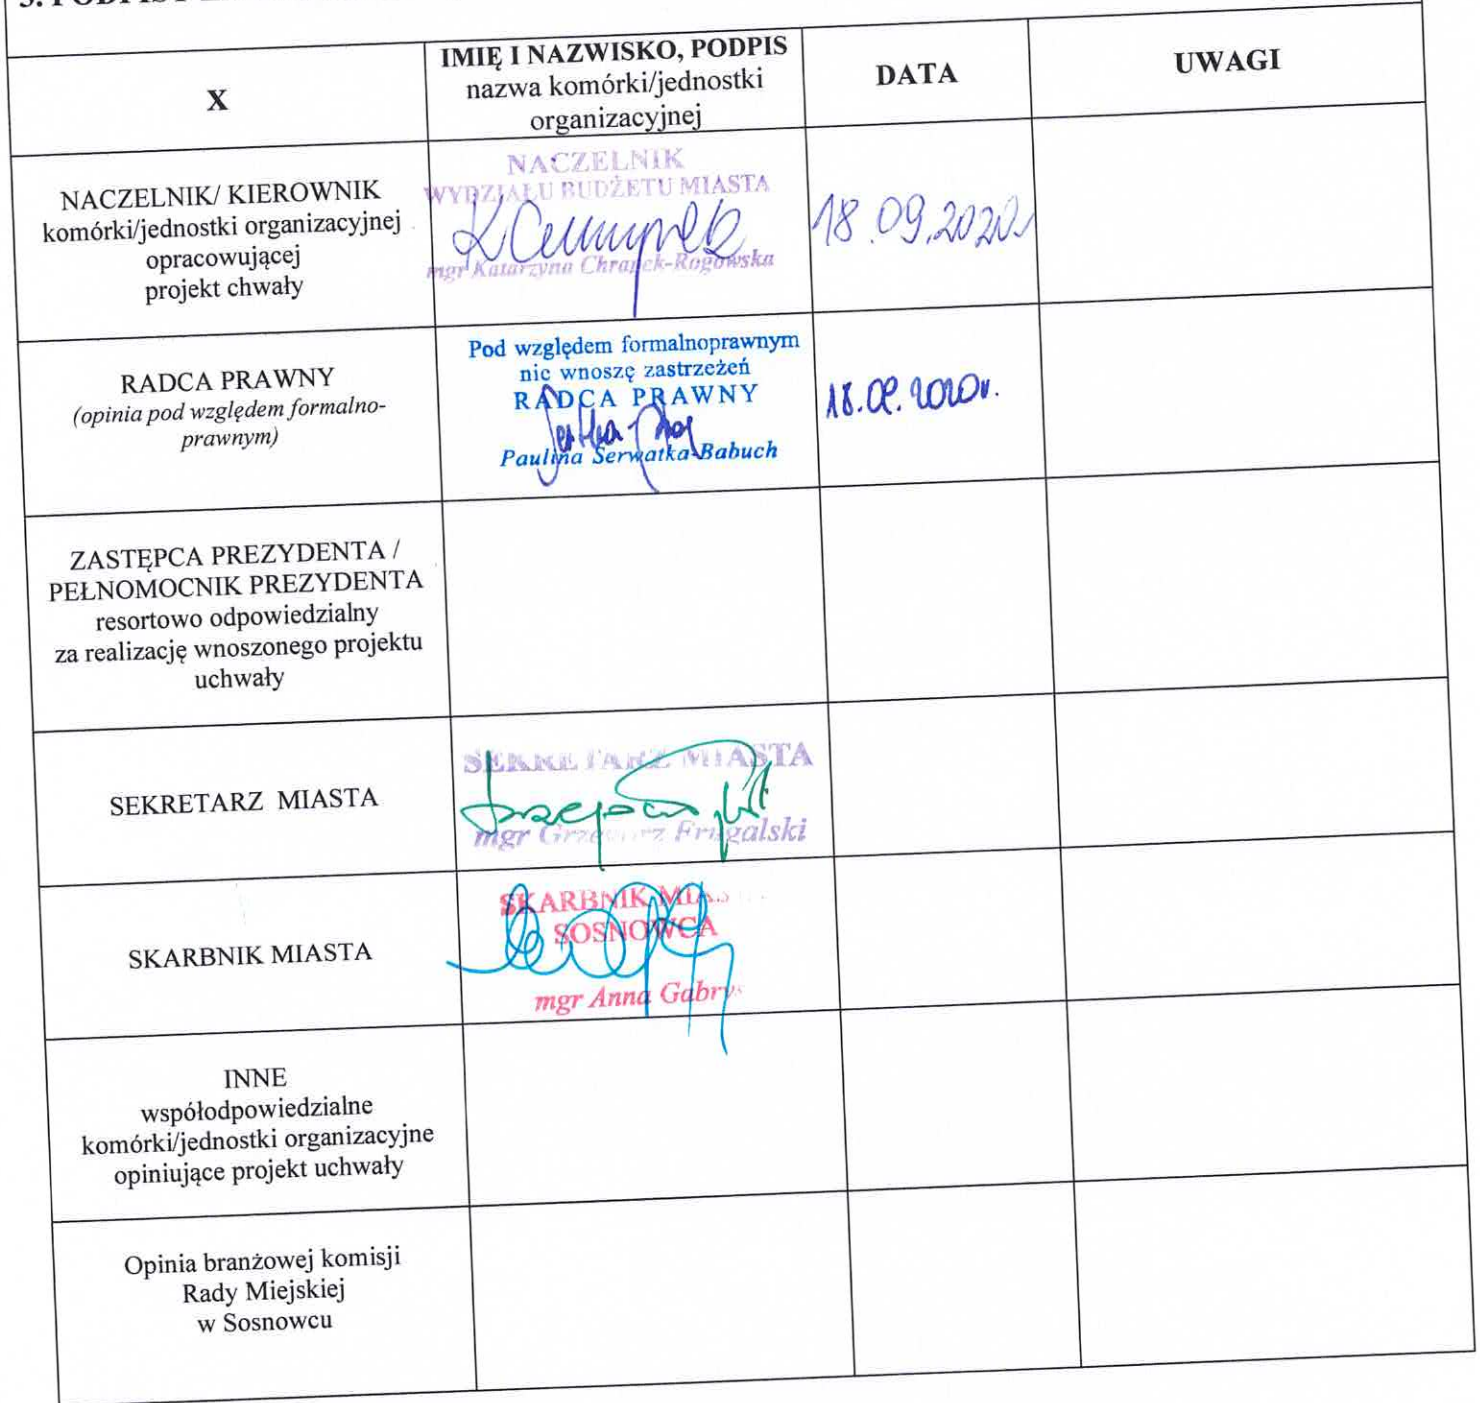 X
IMIĘ I NAZWISKO, PODPIS
nazwa komórki/jednostki
organizacyjnej
DATA
UWAGI
NACZELNIK/ KIEROWNIK
komórki/jednostki organizacyjnej
opracowującej
projekt chwały
NACZELNIK
WYDZIAŁU BUDŻETU MIASTA
mgr Katarzyna Chrapek-Rogowska
18.09.2020r
RADCA PRAWNY
(opinia pod względem formalno-
prawnym)
Pod względem formalnoprawnym
nie wnoszę zastrzeżeń
RADCA PRAWNY
Paulina Serwatka-Babuch
18.09.2020r.
ZASTĘPCA PREZYDENTA /
PEŁNOMOCNIK PREZYDENTA
resortowo odpowiedzialny
za realizację wnoszonego projektu
uchwały
SEKRETARZ MIASTA
SEKRETARZ MIASTA
mgr Grzegorz Frugalski
SKARBNIK MIASTA
SKARBNIK MIAS
SOSNOWCA
mgr Anna Gabryś
INNE
współodpowiedzialne
komórki/jednostki organizacyjne
opiniujące projekt uchwały
Opinia branżowej komisji
Rady Miejskiej
w Sosnowcu